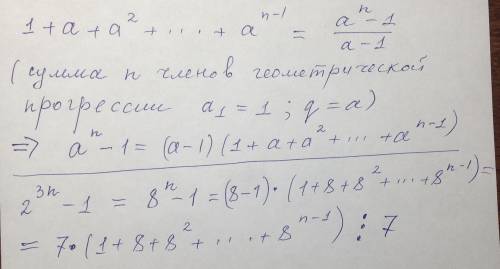 1 + a + a² + .... + aⁿ⁻¹ = (aⁿ - 1)/(a - 1)
(сумма n членов геометрической
прогрессии a₁ = 1 ; q = a)
=> aⁿ - 1 = (a-1)(1 + a + a² + ... + aⁿ⁻¹)
2³ⁿ - 1 = 8ⁿ - 1 = (8-1)·(1+8+8²+...+8ⁿ⁻¹)=
= 7·(1+8+8²+....+8ⁿ⁻¹) ⋮ 7